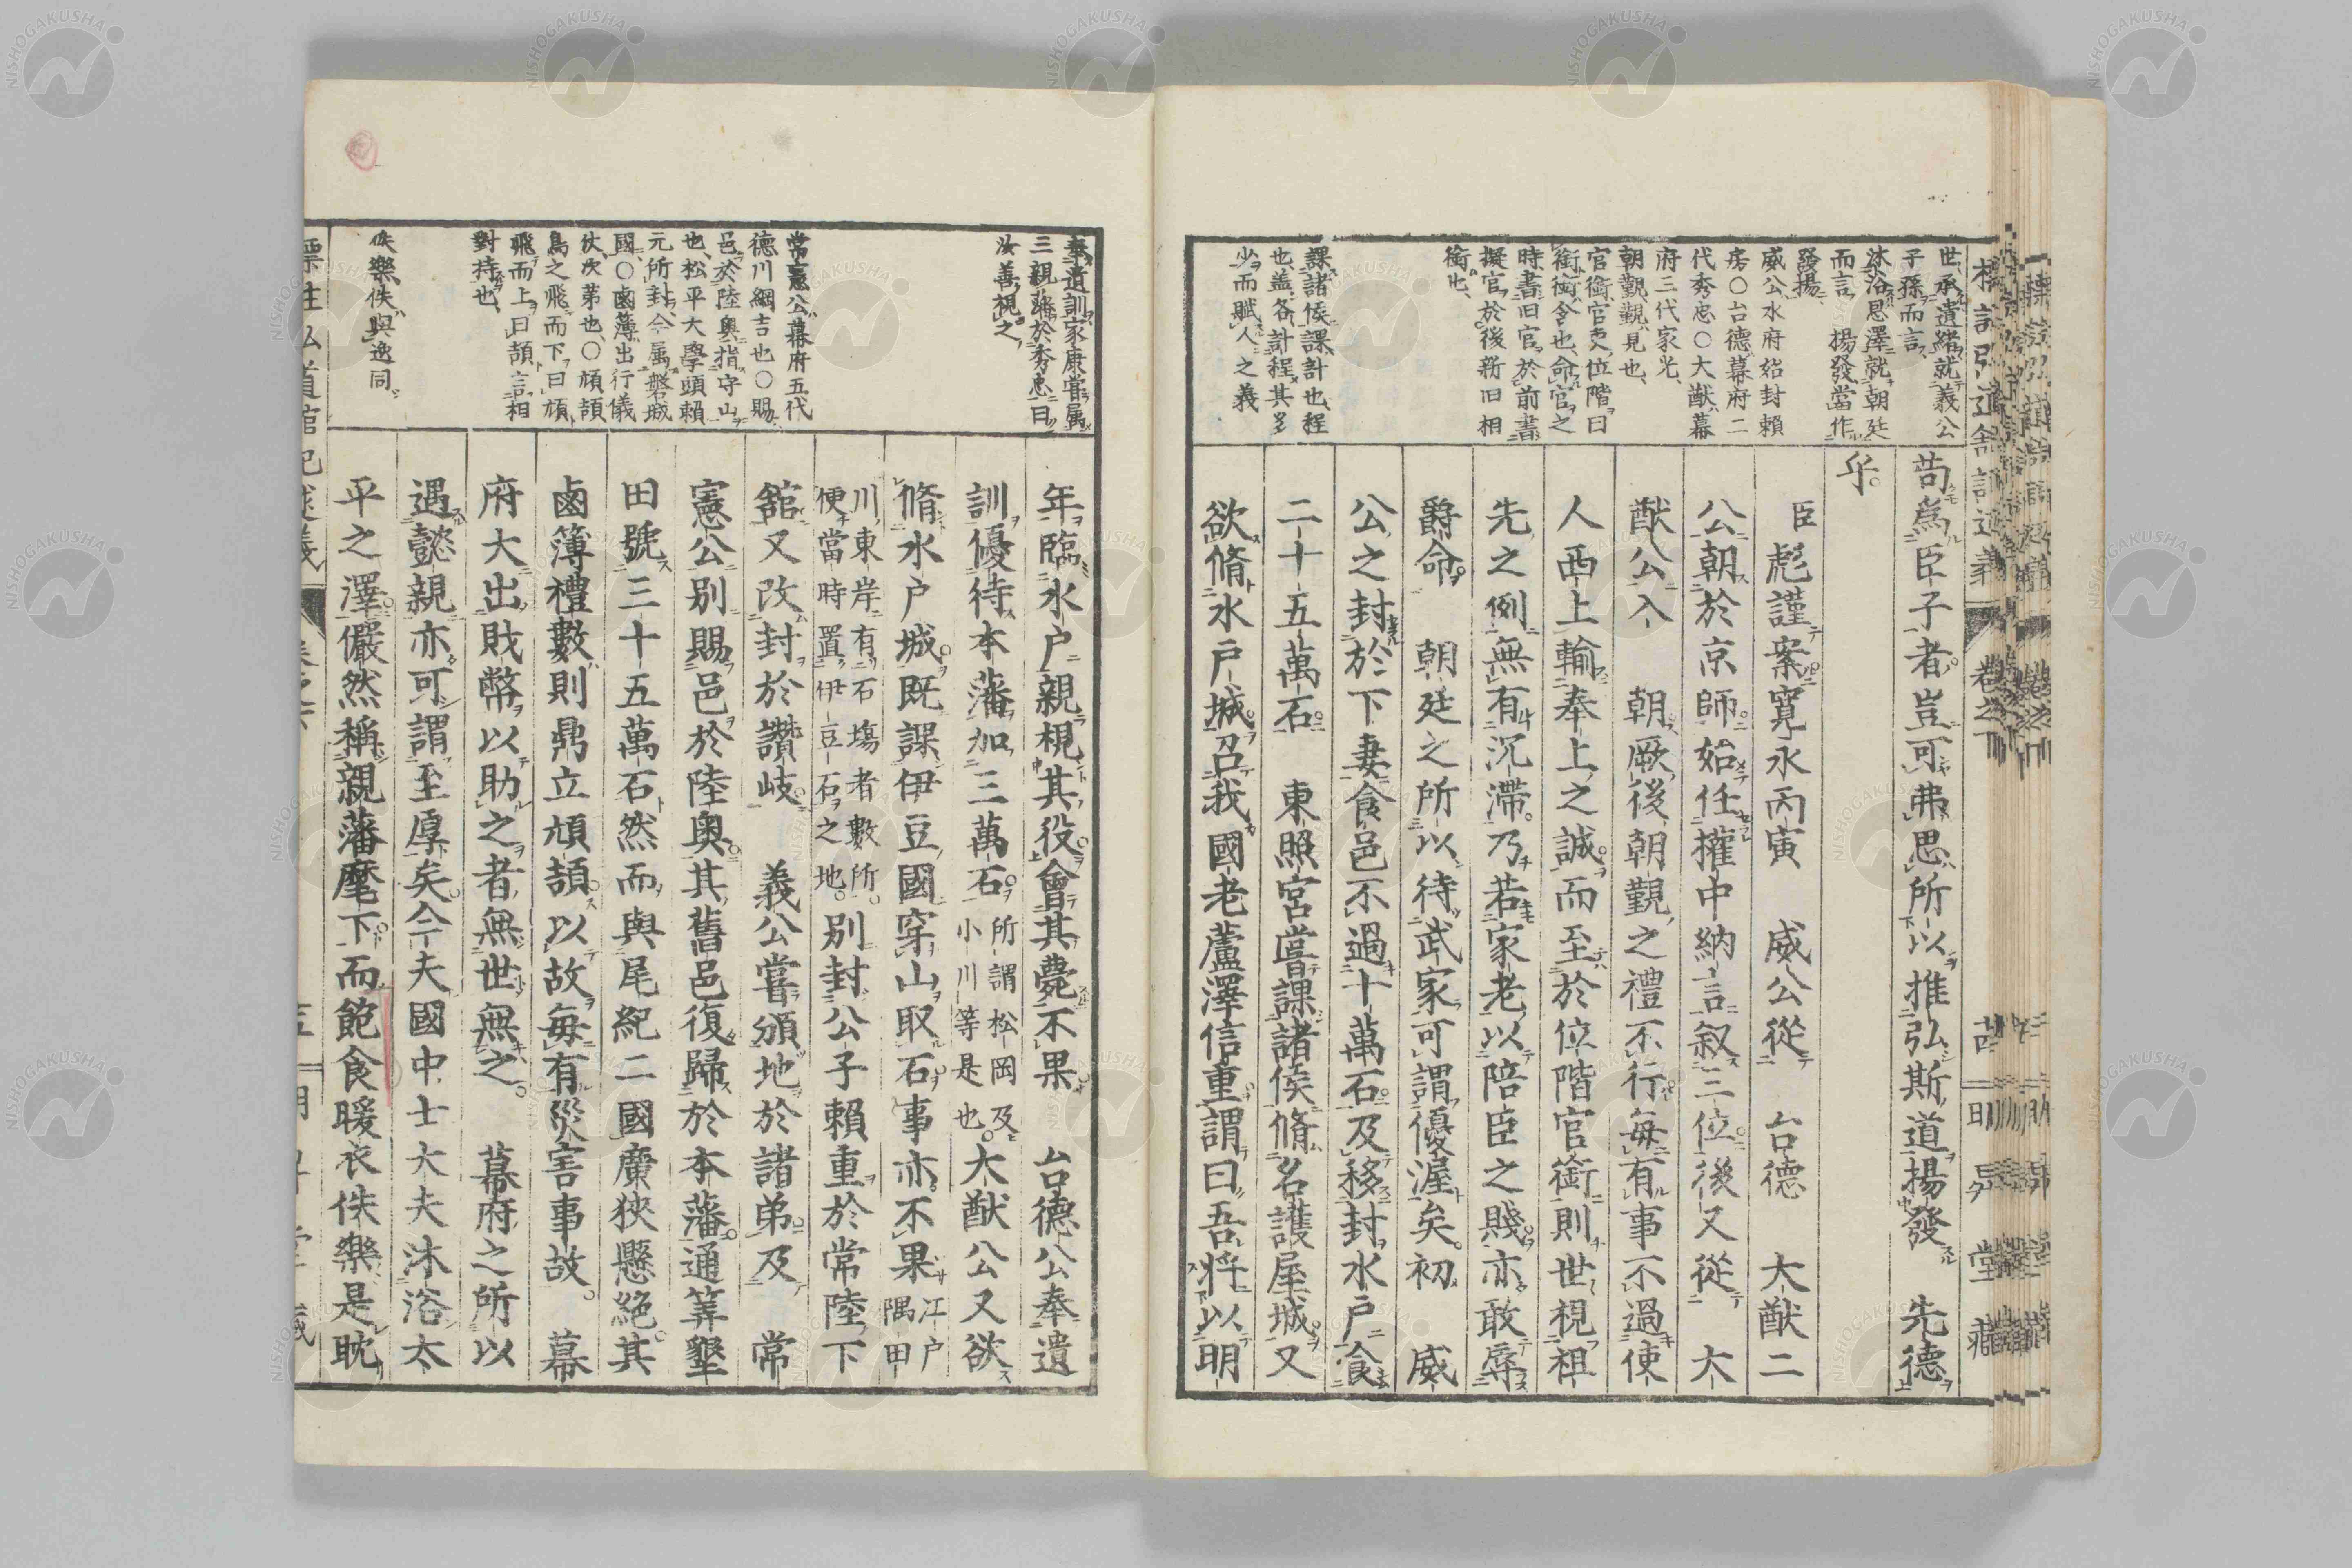 世承遺緒就義公
子孫而言
沐浴恩澤就朝廷
而言 揚發當作
發揚
威公水府始封賴
房○台德幕府二
代秀忠○大猷幕
府三代家光
朝覲覲見也
官銜官吏位階曰
銜銜令也命官之
時書旧官於前書
擬官於後新旧相
銜也
課諸侯課計也程
也盖各計程其多
少而賦人之義
苟爲臣子者豈可弗思所以推弘斯道揚發 先德
乎
臣彪謹案寛永丙寅 威公從 台德 大猷二
公朝於京師始任權中納言叙三位後又從 大
猷公入 朝厥後朝覲之禮不行每有事不過使
人西上輸奉上之誠而至於位階官銜則世視祖
先之例無有沉滯乃若家老以陪臣之賤亦敢辱
爵命 朝廷之所以待武家可謂優渥矣初 威
公之封於下妻食邑不過十萬石及移封水戸食
二十五萬石 東照宮嘗課諸侯脩名護屋城又
欲脩水戸城召我國老蘆澤信重謂曰吾將以明
奉遺訓家康嘗属
三親藩於秀忠曰
汝善視之
常憲公幕府五代
德川綱吉也○賜
邑於陸奥指守山
也松平大學頭賴
元所封今属磐城
國○鹵簿出行儀
仗次第也○頎頡
鳥之飛而下曰頎
飛而上曰頡言相
對持也
佚樂佚與逸同
年臨水戸親視其役會其薨不果 台德公奉遺
訓優待本藩加三萬石所謂松岡及小川等是也大猷公又欲
脩水戸城既課伊豆國穿山取石事亦不果江戸隅田
川東岸有石塲者數所便當時置伊豆石之地別封公子賴重於常陸下
舘又改封於讚岐 義公嘗頒地於諸弟及 常
憲公別賜邑於陸奥其舊邑復歸於本藩通筭墾
田號三十五萬石然而與尾紀二國廣狹懸絶其
鹵簿禮數則鼎立頎頡以故毎有災害事故 幕
府大出財幣以助之者無世無之 幕府之所以
遇懿親亦可謂至厚矣今夫國中士大夫沐浴太
平之澤儼然稱親藩麾下而飽食暖衣佚樂是耽
標註弘道館記述義